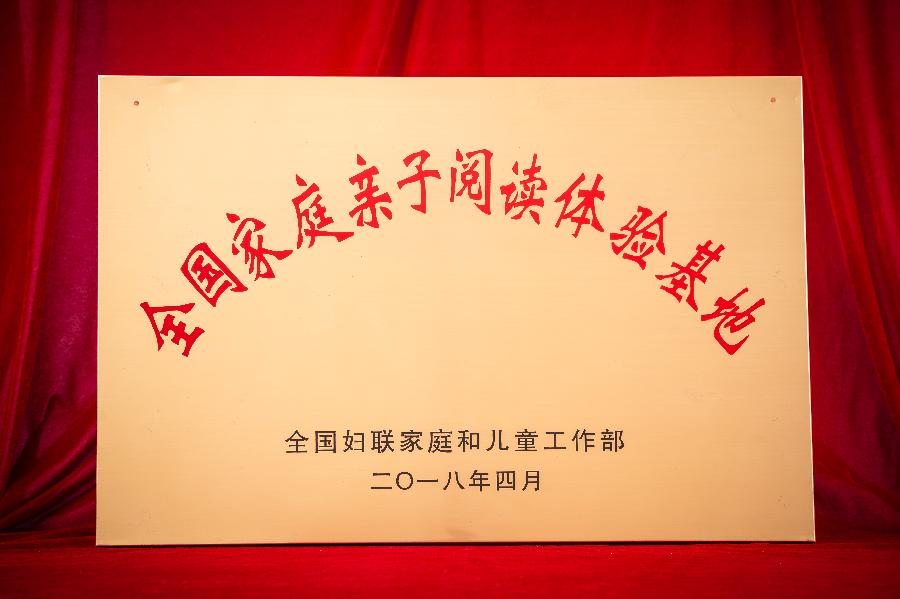 全国家庭亲子阅读体验基地
全国妇联家庭和儿童工作部
二〇一八年四月